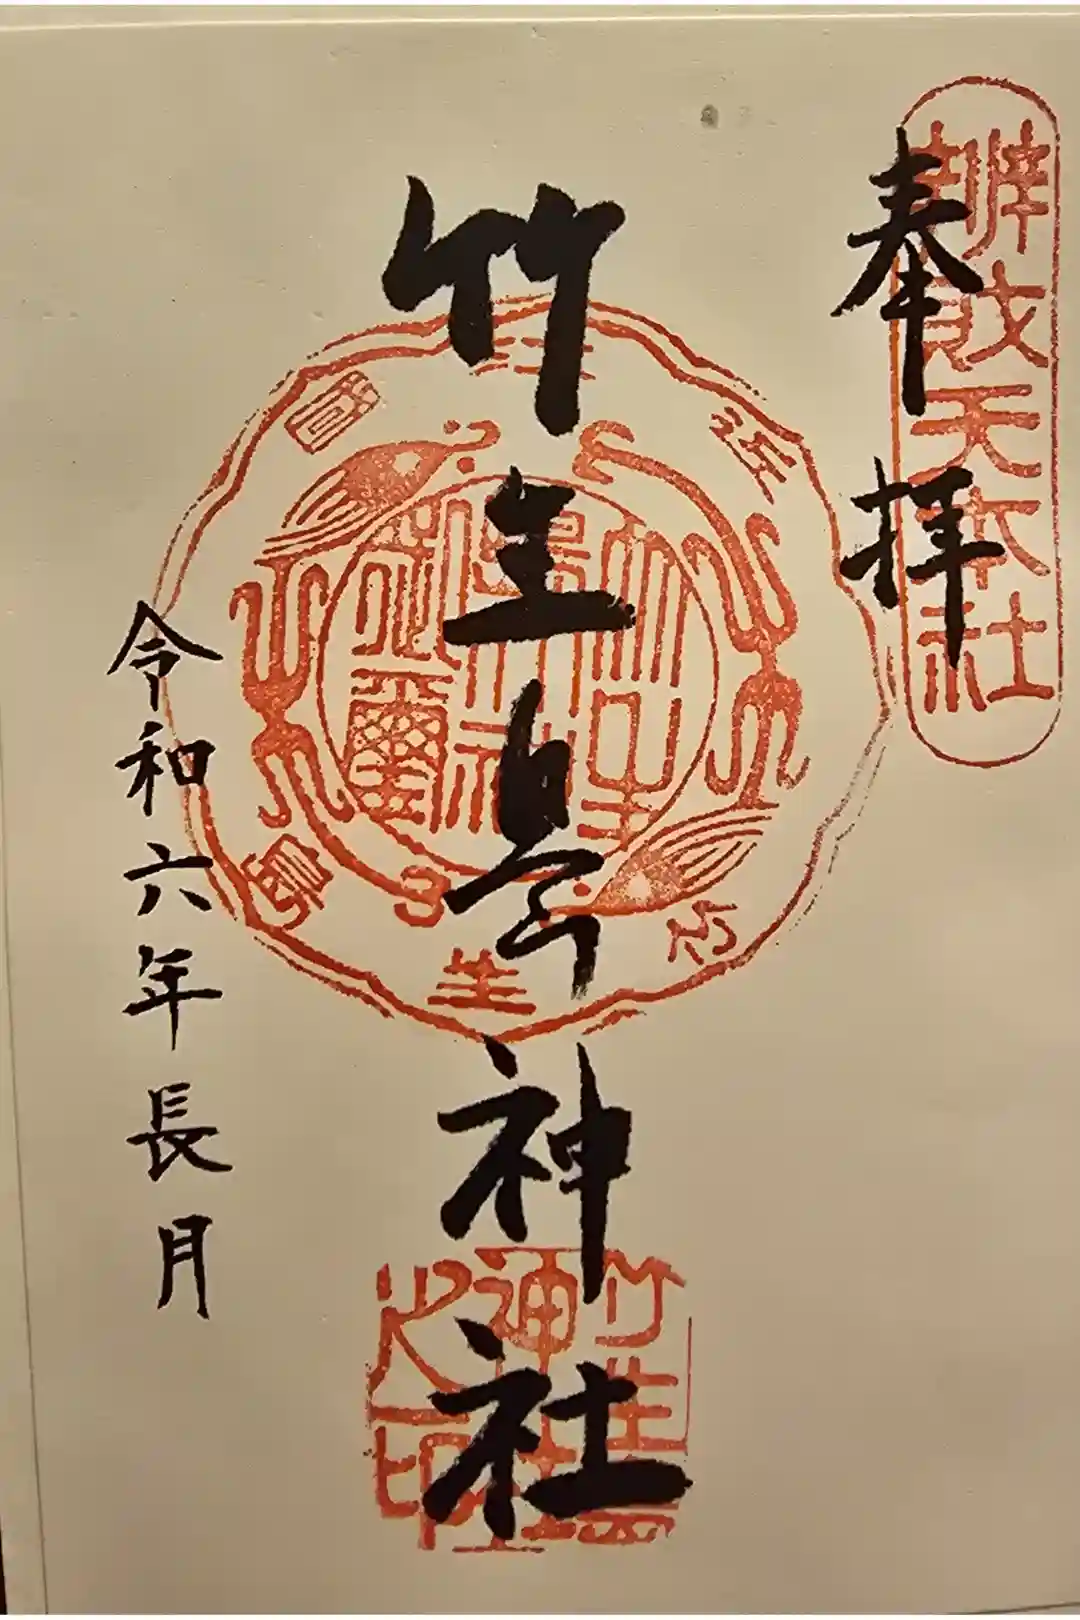 辨戝天本社
奉拝
竹生島神社
近江國
竹生島
竹生島神社之印
令和六年長月